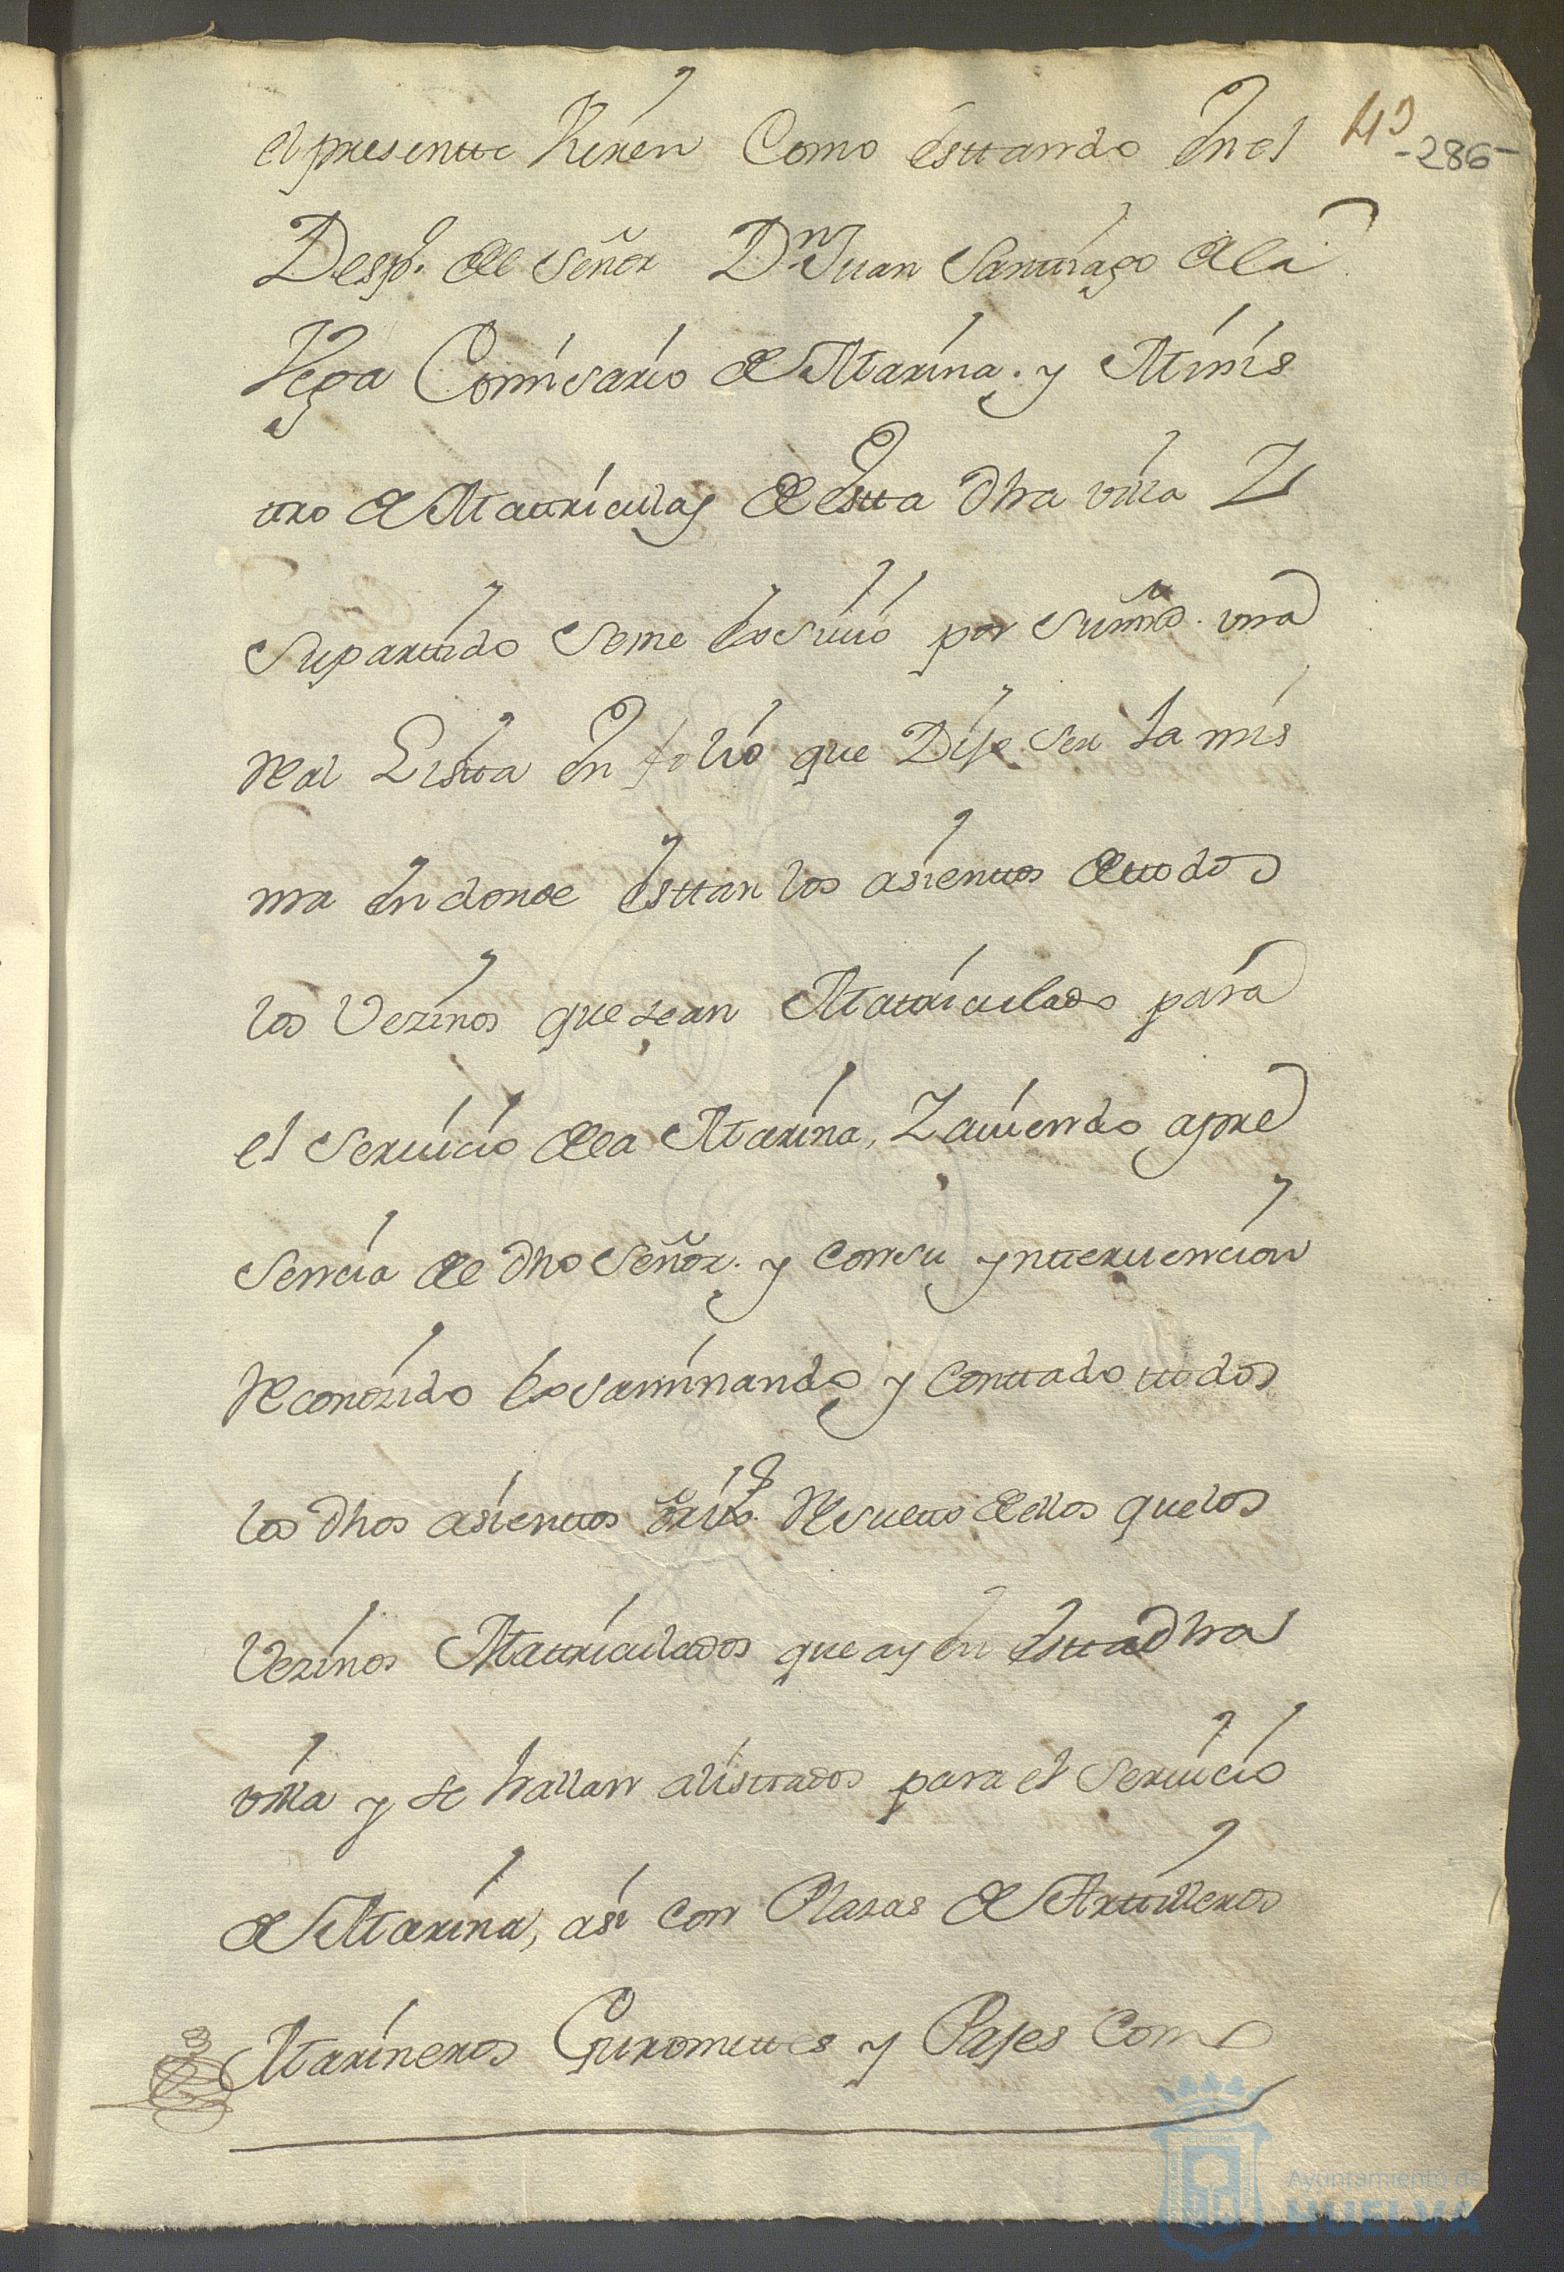 43
-286-
el presentte Vieren Como esttando En el
Despº. de el señor Dn. Juan Santtiago de la
Vega Comisario de Marina. y Minis
ttro de Mattriculas de Estta dha villa Y
su parttido se me Exsiuió por su mrd. vna
Real Listta En folio que Dijo ser la mis
ma En donde Esttan los asienttos de ttodos
los Vezinos que sean Mattriculado para
el seruicio de la Marina, Y auiendo a pre
sencia de dho señor. y con su ynteruencion
Reconozido Exsaminando y Conttado ttodos
los dhos asienttos Resueltto de ellos que los
Vezinos Mattriculados que ay En Estta dha
villa y se hallan alisttados para el seruicio
de Marina, asi con Plazas de Arttilleros
Marineros Guromettes y Pajes Com
Ayuntamiento de
HUELVA